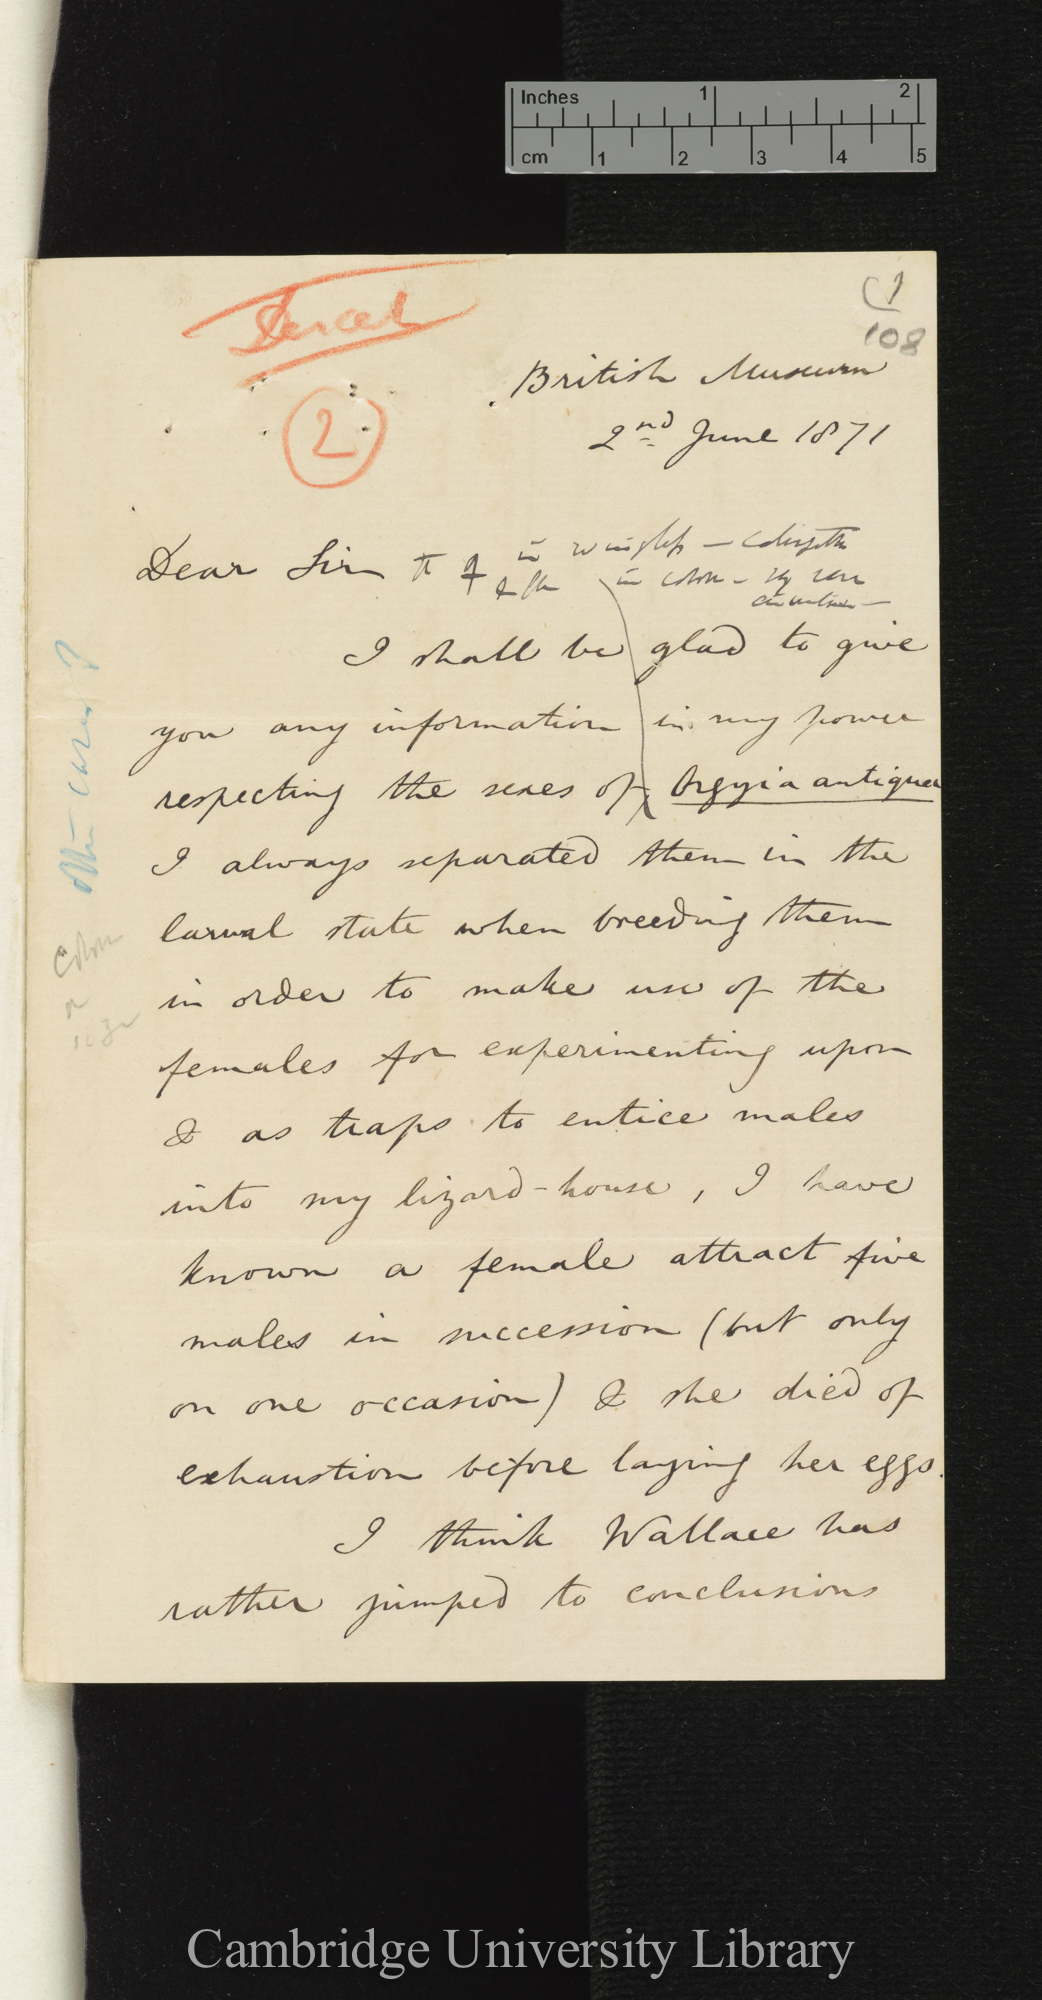 Inches 1 2
cm 1 2 3 4 5
1
108
2
British Museum
2nd June 1871
Dear Sir
I shall be glad to give
you any information in my power
respecting the sexes of Orgyia antiqua
I always separated them in the
larval state when breeding them
in order to make use of the
females for experimenting upon
& as traps to entice males
into my lizard-house, I have
known a female attract five
males in succession (but only
on one occasion) & she died of
exhaustion before laying her eggs.
I think Wallace has
rather jumped to conclusions
Cambridge University Library